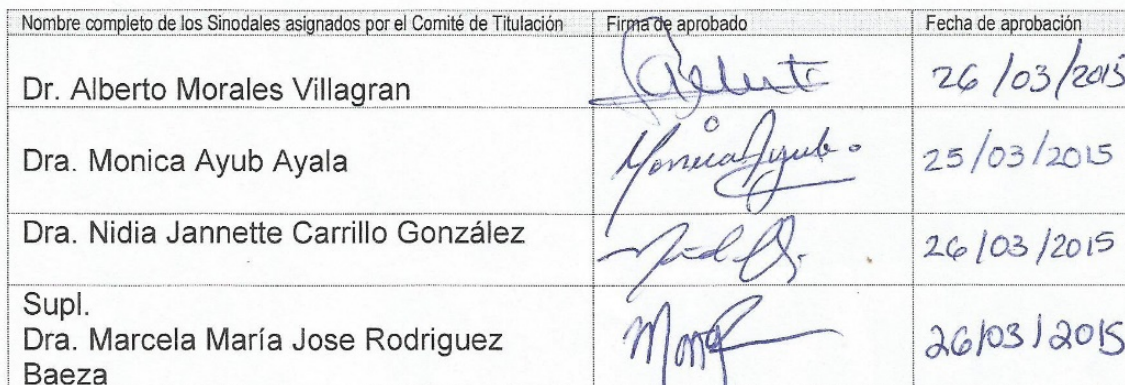 Nombre completo de los Sinodales asignados por el Comité de Titulación Firma de aprobado Fecha de aprobación
Dr. Alberto Morales Villagran 26/03/2015
Dra. Monica Ayub Ayala Monica Ayub 25/03/2015
Dra. Nidia Jannette Carrillo González 26/03/2015
Supl.
Dra. Marcela María Jose Rodriguez 26/03/2015
Baeza